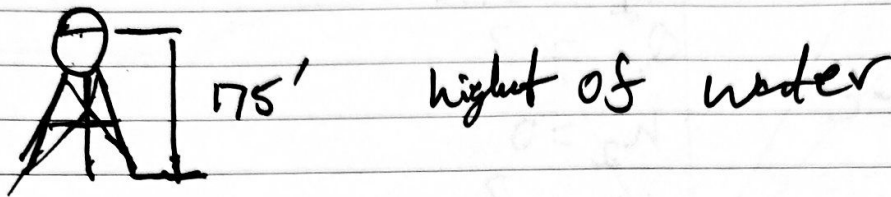 175' hight of water